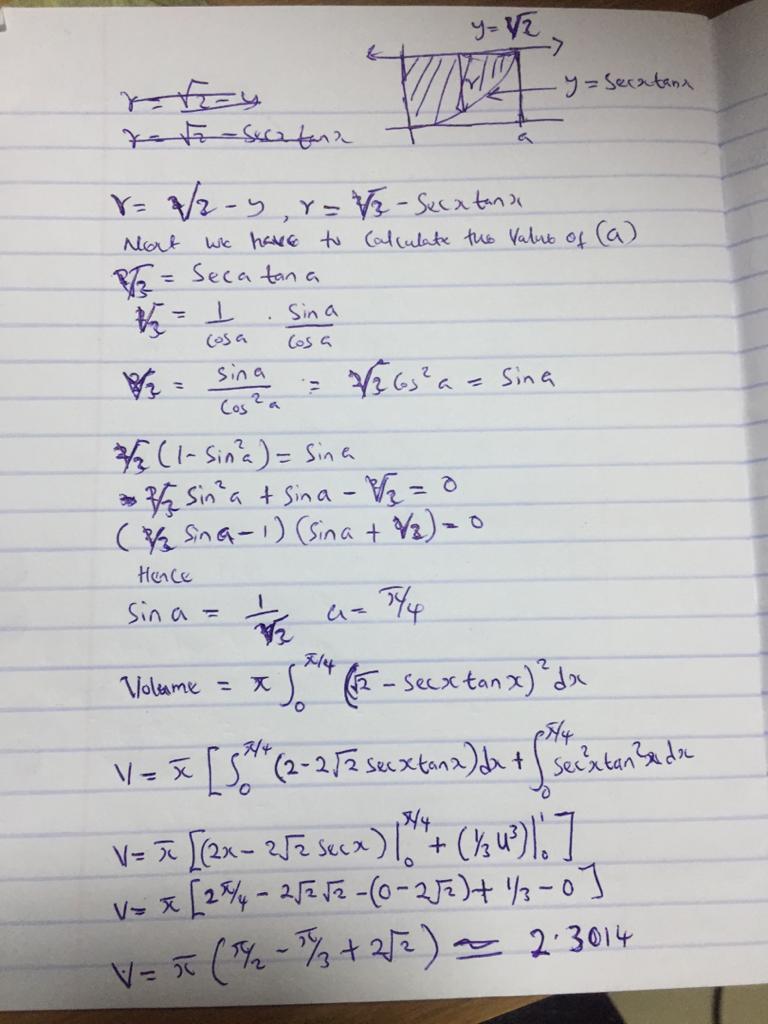 y = √2
y = secxtanx
r = √2 - y
a
r = √2 - secxtanx
r = √2 - y, r = √2 - secxtanx
Next we have to calculate the value of (a)
√2 = sec a tan a
√2 = 1/cos a · sin a/cos a
√2 = sin a/cos²a = √2 cos²a = sin a
√2 (1 - sin²a) = sin a
√2 sin²a + sin a - √2 = 0
(√2 sin a - 1)(sin a + √2) = 0
Hence
sin a = 1/√2 a = π/4
Volume = π ∫₀^π/4 (√2 - secxtanx)² dx
V = π [∫₀^π/4 (2 - 2√2 secxtanx)dx + ∫₀^π/4 sec²xtan²x dx
V = π [(2x - 2√2 secx)|₀^π/4 + (1/3 u³)|₀¹]
V = π [2π/4 - 2√2√2 - (0 - 2√2) + 1/3 - 0]
V = π (π/2 - π/3 + 2√2) ≈ 2.3014